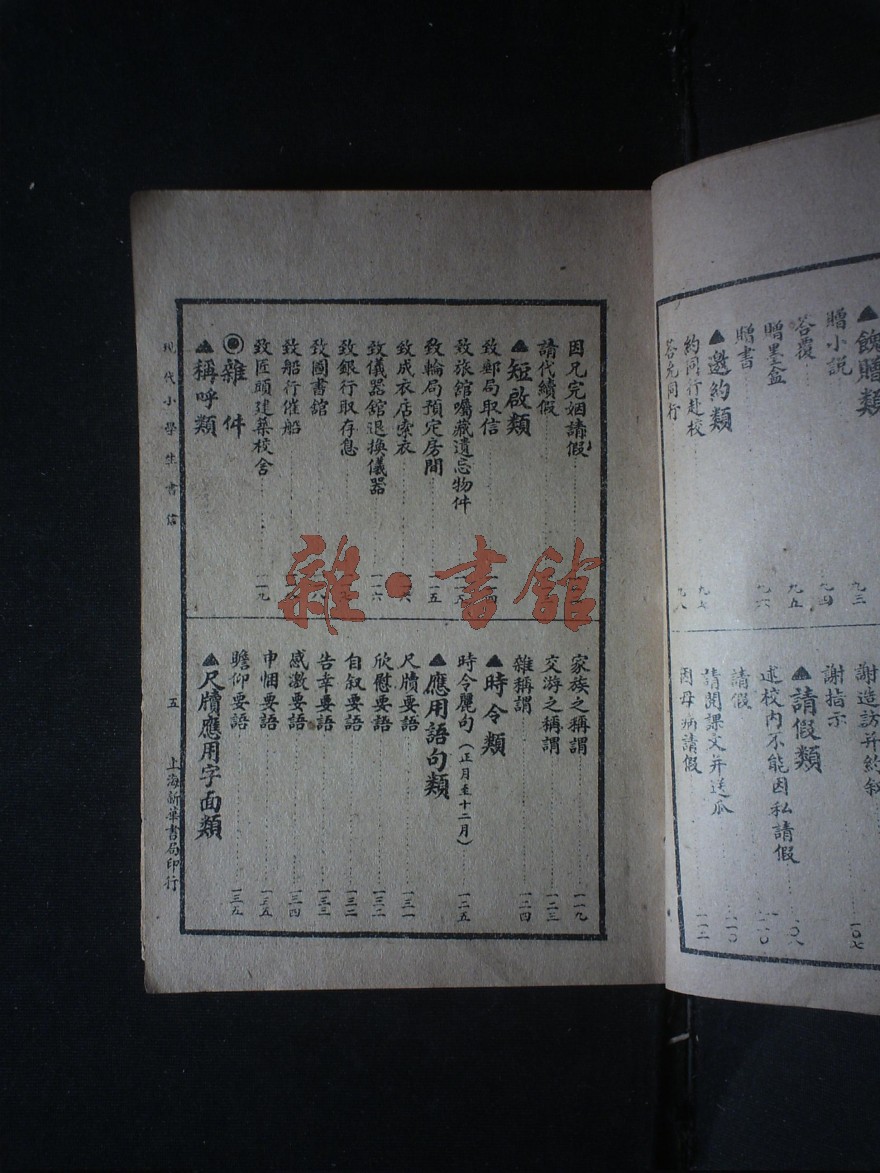 ▲餽贈類
贈小說 九三
答覆 九四
贈墨盒 九五
贈書 九六
▲邀約類
約同行赴校 九七
答允同行 九八
謝造訪并約敘 一〇七
謝指示
▲請假類
述校內不能因私請假 一〇八
請假 一一〇
請閱課文并送瓜 一一〇
因母病請假 一一二
因兄完姻請假
請代續假
▲短啟類
致郵局取信
致旅館囑藏遺忘物件
致輪局預定房間 一一五
致成衣店索衣
致儀器館退換儀器 一一六
致銀行取存息
致圖書館
致船行催船
致匠頭建築校舍 一一九
◉雜件
▲稱呼類
家族之稱謂 一一九
交游之稱謂 一二三
雜稱謂 一二四
▲時令類
時令麗句(正月至十二月) 一二五
▲應用語句類
尺牘要語 一三一
欣慰要語 一三二
自叙要語 一三二
告幸要語 一三三
感激要語 一三四
巾悃要語 一三五
瞻仰要語 一三五
▲尺牘應用字面類
現代小學生書信
五
上海新華書局印行
雜·書館